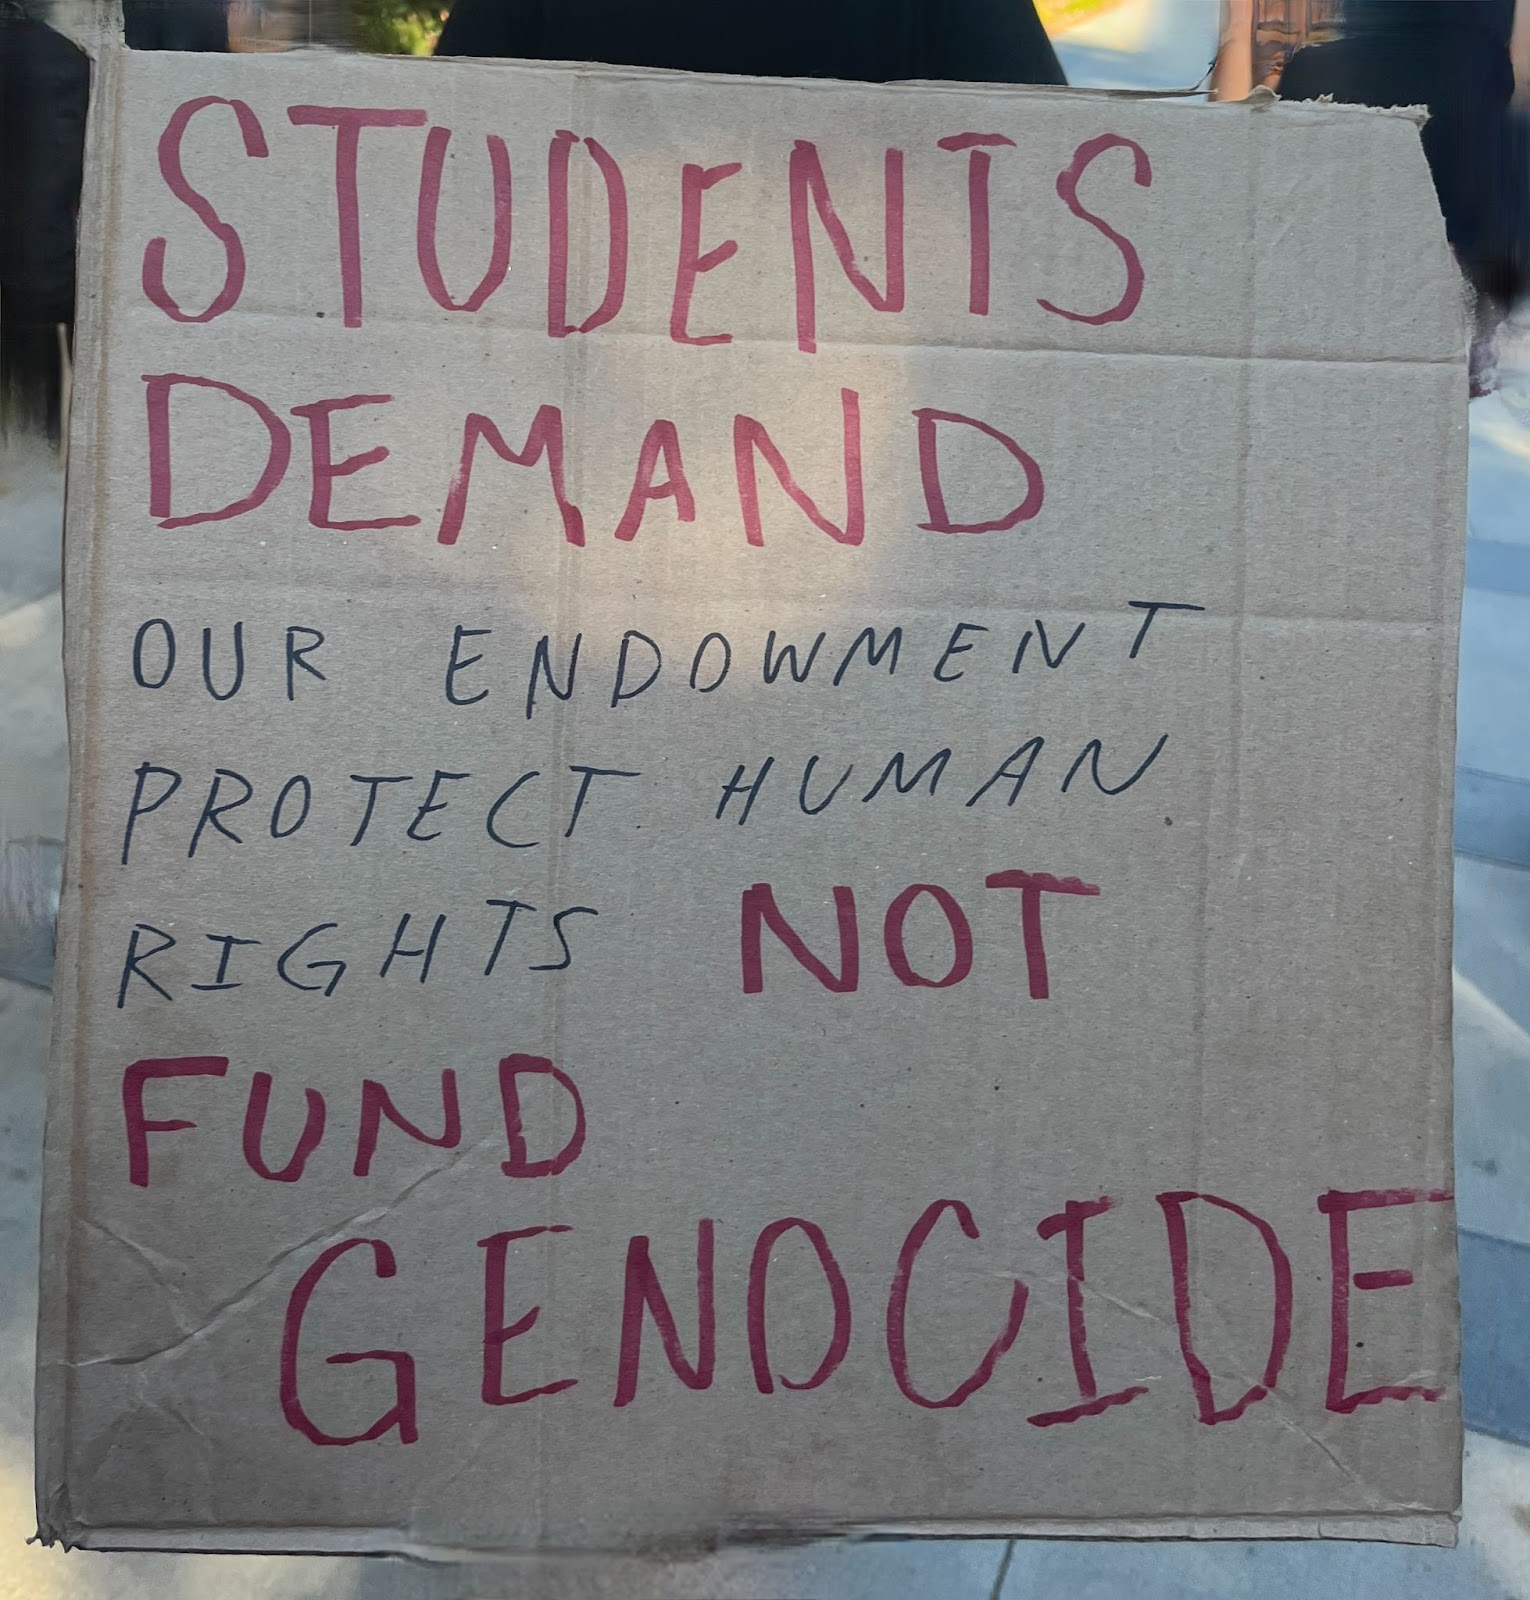 STUDENTS
DEMAND
OUR ENDOWMENT
PROTECT HUMAN
RIGHTS NOT
FUND
GENOCIDE